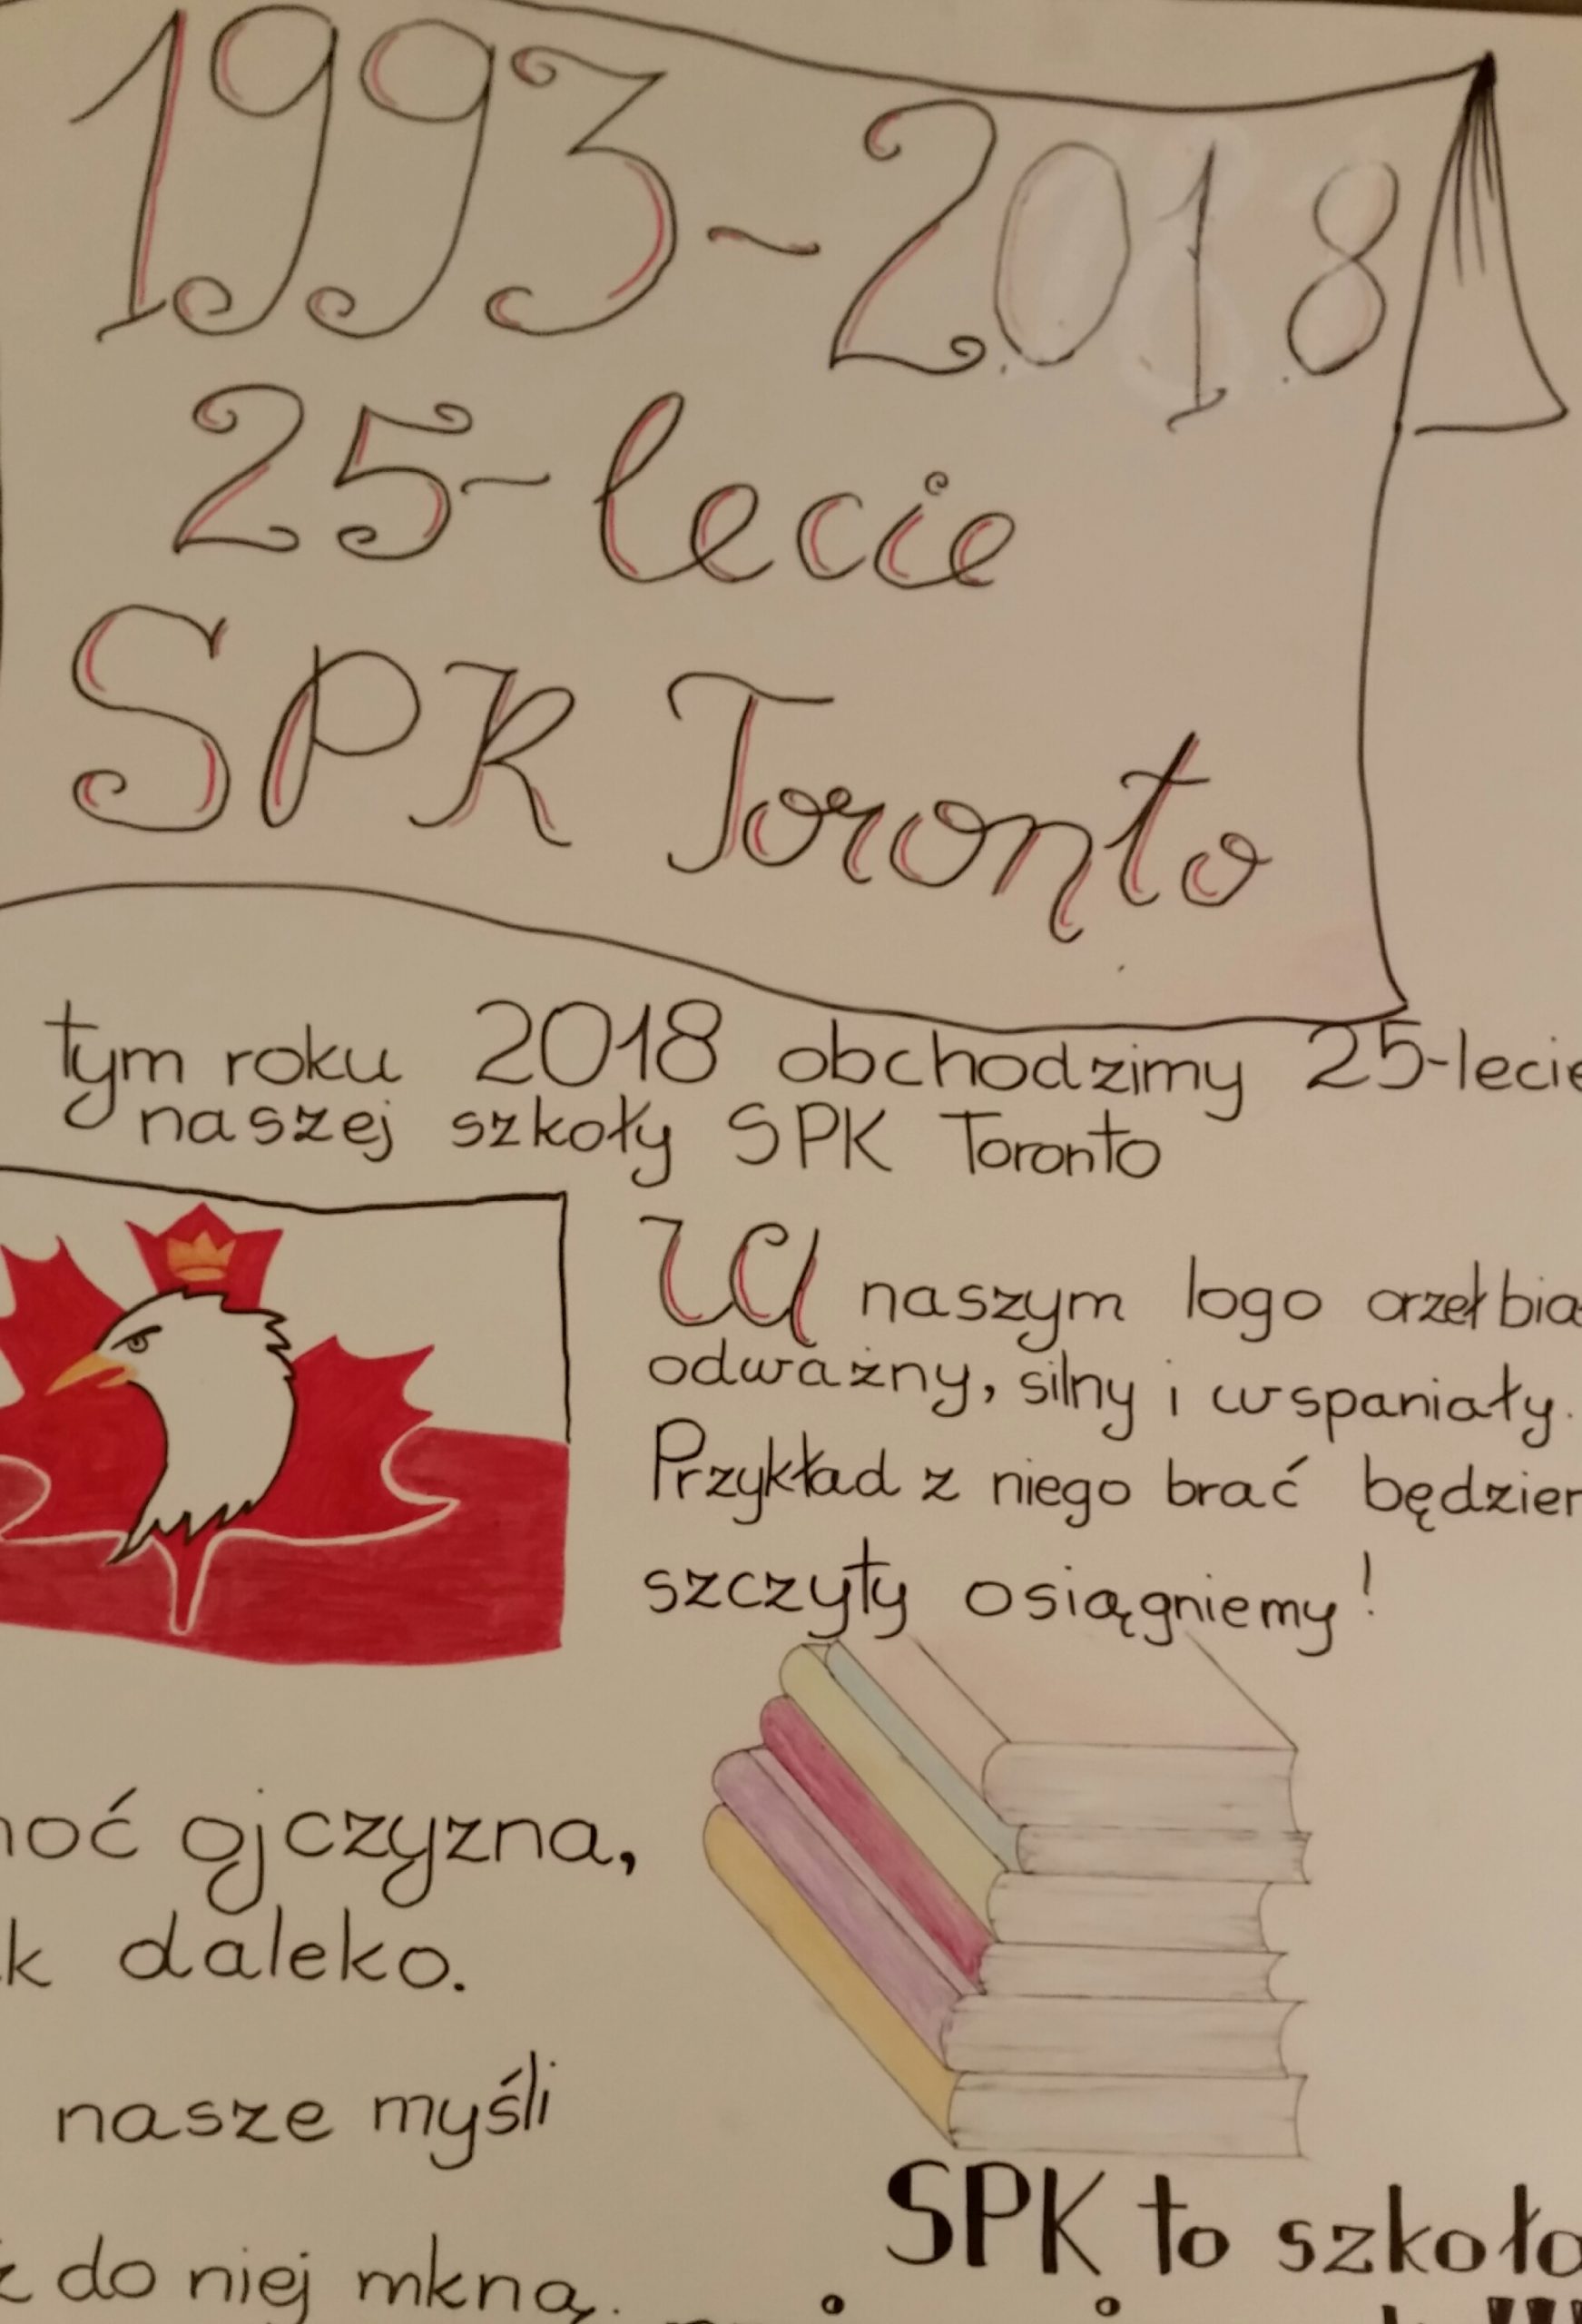 1993-2018
25-lecie
SPK Toronto
tym roku 2018 obchodzimy 25-lecie
naszej szkoły SPK Toronto
W naszym logo orzeł
odważny, silny i wspaniały.
Przykład z niego brać
szczyty osiągniemy!
ojczyzna,
daleko.
nasze myśli
do niej mkną.
SPK to szkoła